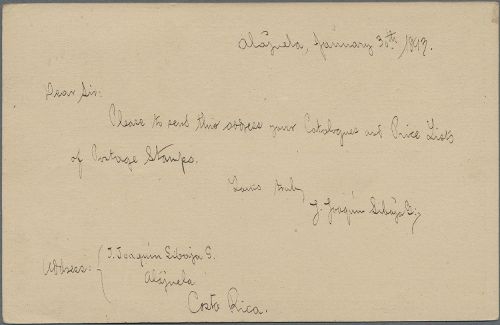 Alájuela, January 30th, 1893.
Dear Sir:
Please to send this address your Catalogues and Price Lists
of Postage Stamps.
Yours truly
J. Joaquín Sibaja G.
Address: J. Joaquín Sibaja G.
Alájuela
Costa Rica.